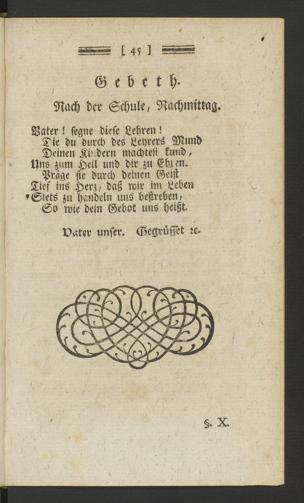 [ 45 ]
Gebeth.
Nach der Schule, Nachmittag.
Vater! segne diese Lehren!
Die du durch des Lehrers Mund
Deinen Kindern machtest kund,
Uns zum Heil und dir zu Ehren.
Präge sie durch deinen Geist
Tief ins Herz, daß wir im Leben
Stets zu handeln uns bestreben,
So wie dein Gebot uns heißt.
Vater unser. Gegrüsset ꝛc.
§. X.